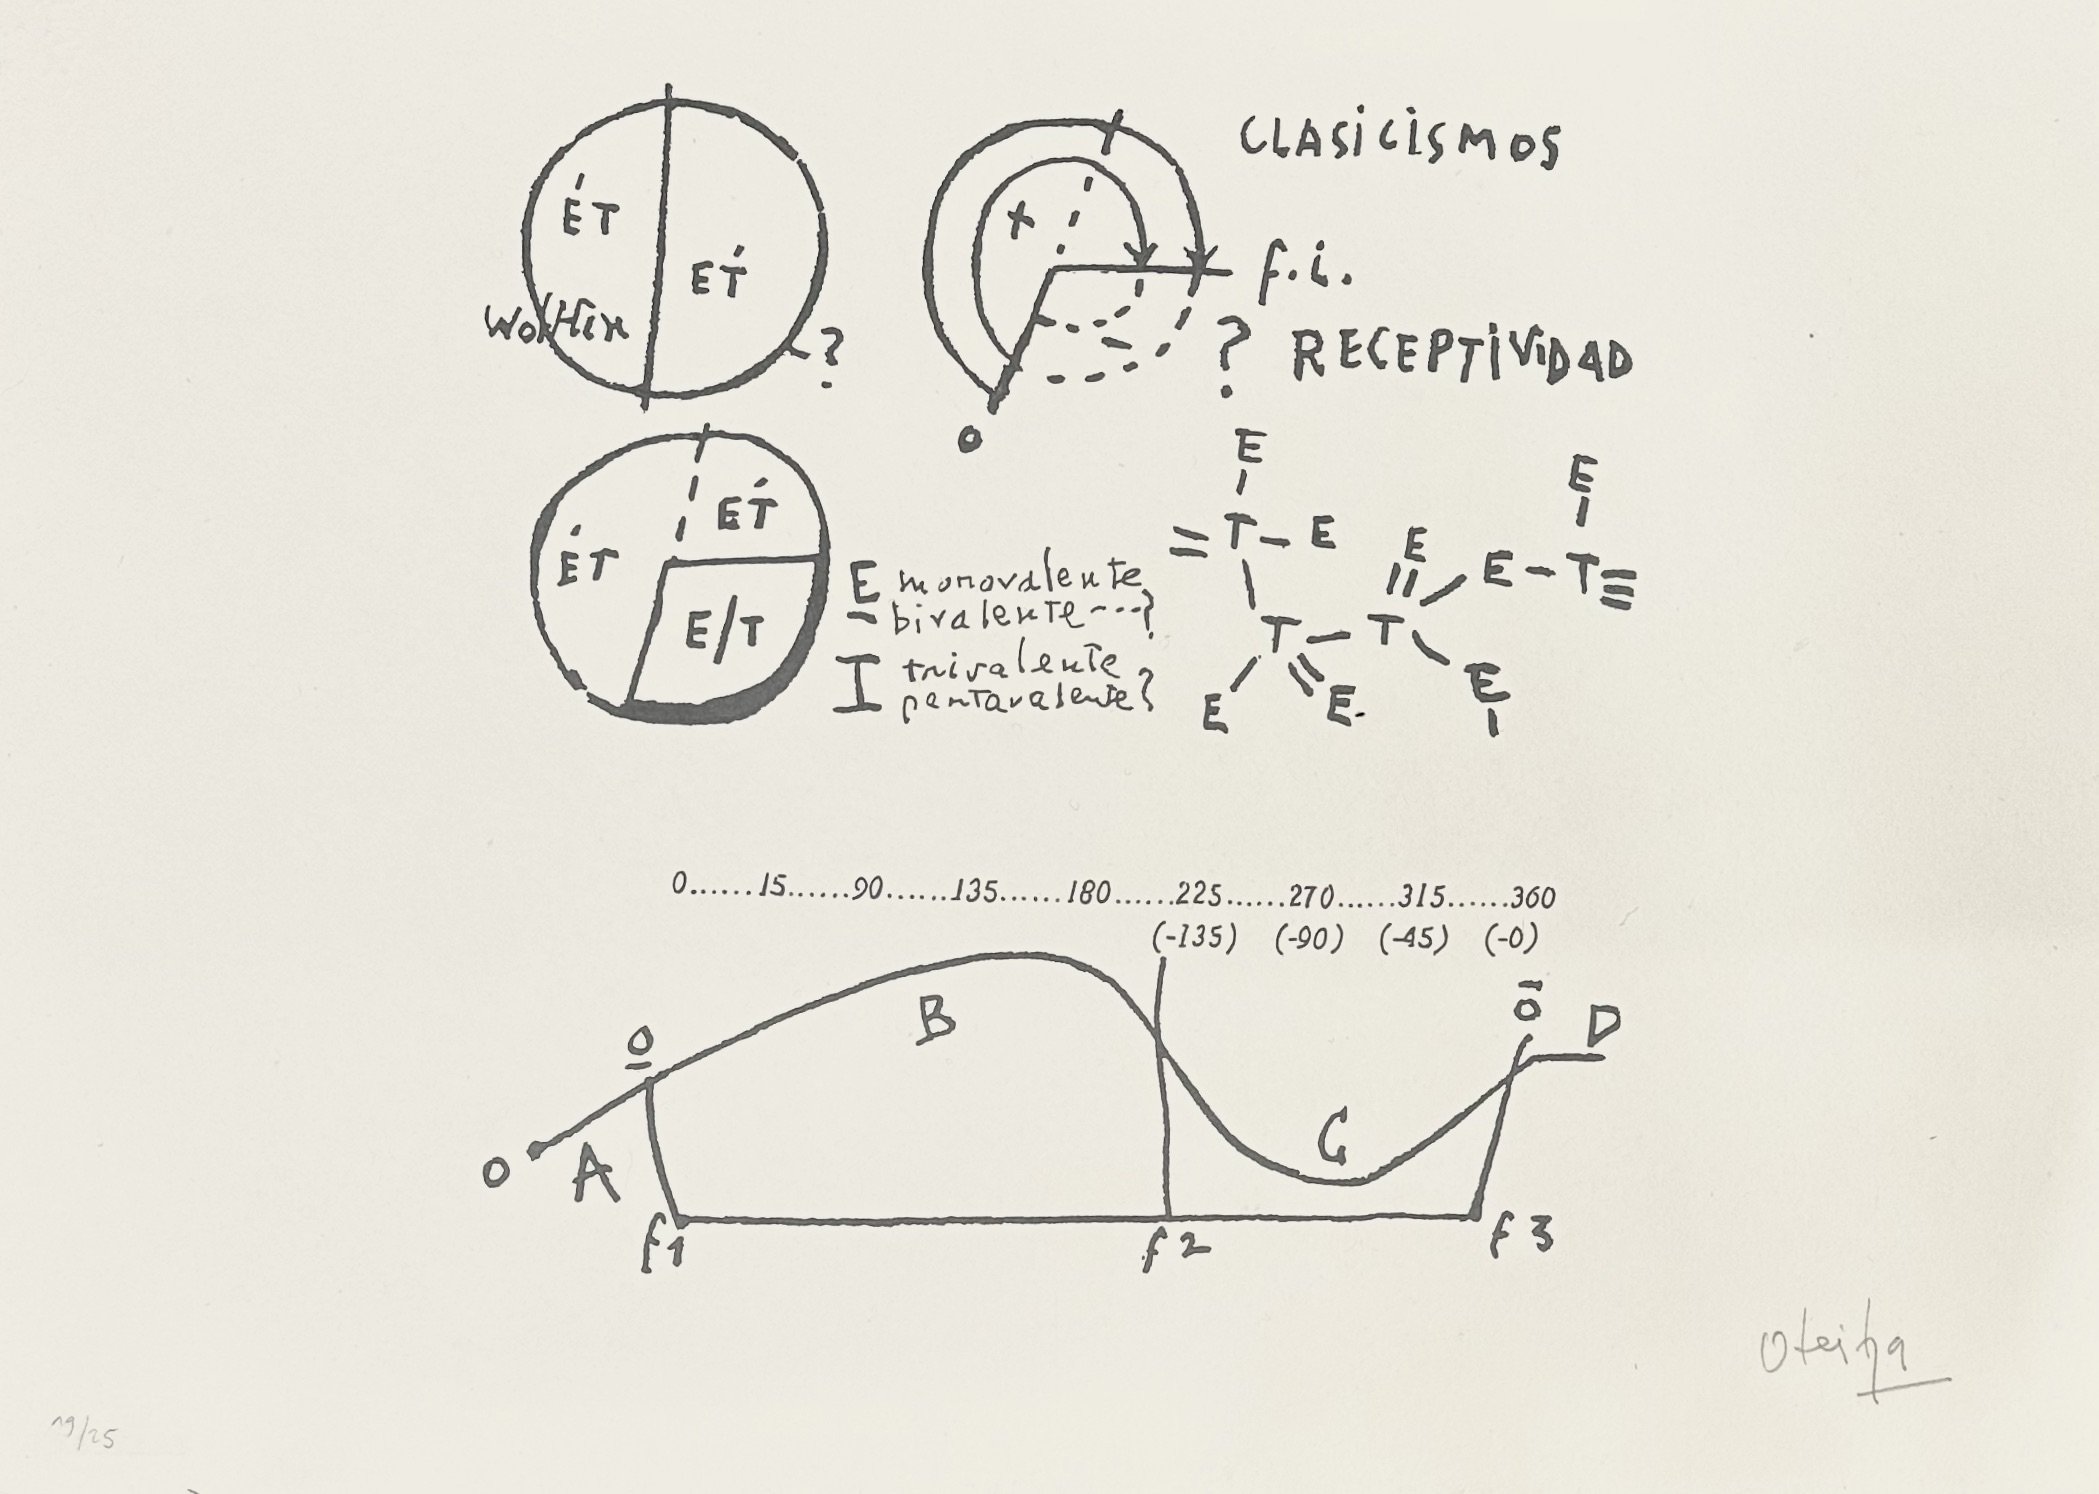 ÉT
EṪ
Wolflin
?
CLASICISMOS
+
f.i.
-
? RECEPTIVIDAD
O
ÉT
EṪ
E/T
E monovalente
bivalente ---?
I trivalente
pentavalente?
E
E
= T - E
E
E - T ≡
T - T
E
E
E
0......15......90......135......180......225......270......315......360
(-135) (-90) (-45) (-0)
B
O
O
D
C
O
A
f1
f2
f3
Oteiza
19/25